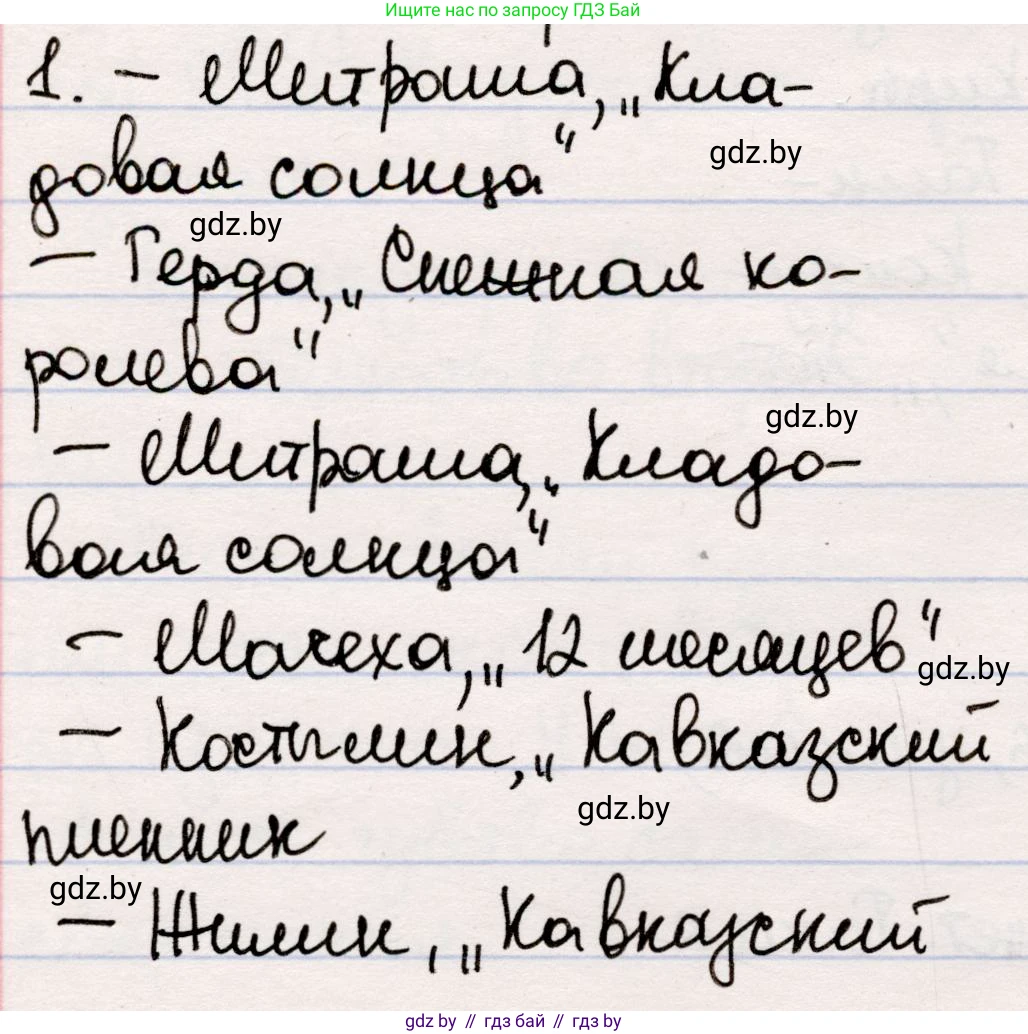 Ищите нас по запросу ГДЗ Бай
1. – Митраша, „Кла-
довая солнца“
gdz.by
gdz.by
– Герда, „Снежная ко-
ролева“
gdz.by
– Митраша, „Кладо-
вая солнца“
– Мачеха, „12 месяцев“
gdz.by
– Костылин, „Кавказский
gdz.by
пленник
gdz.by
– Жилин, „Кавказский
gdz.by // гдз бай // гдз by